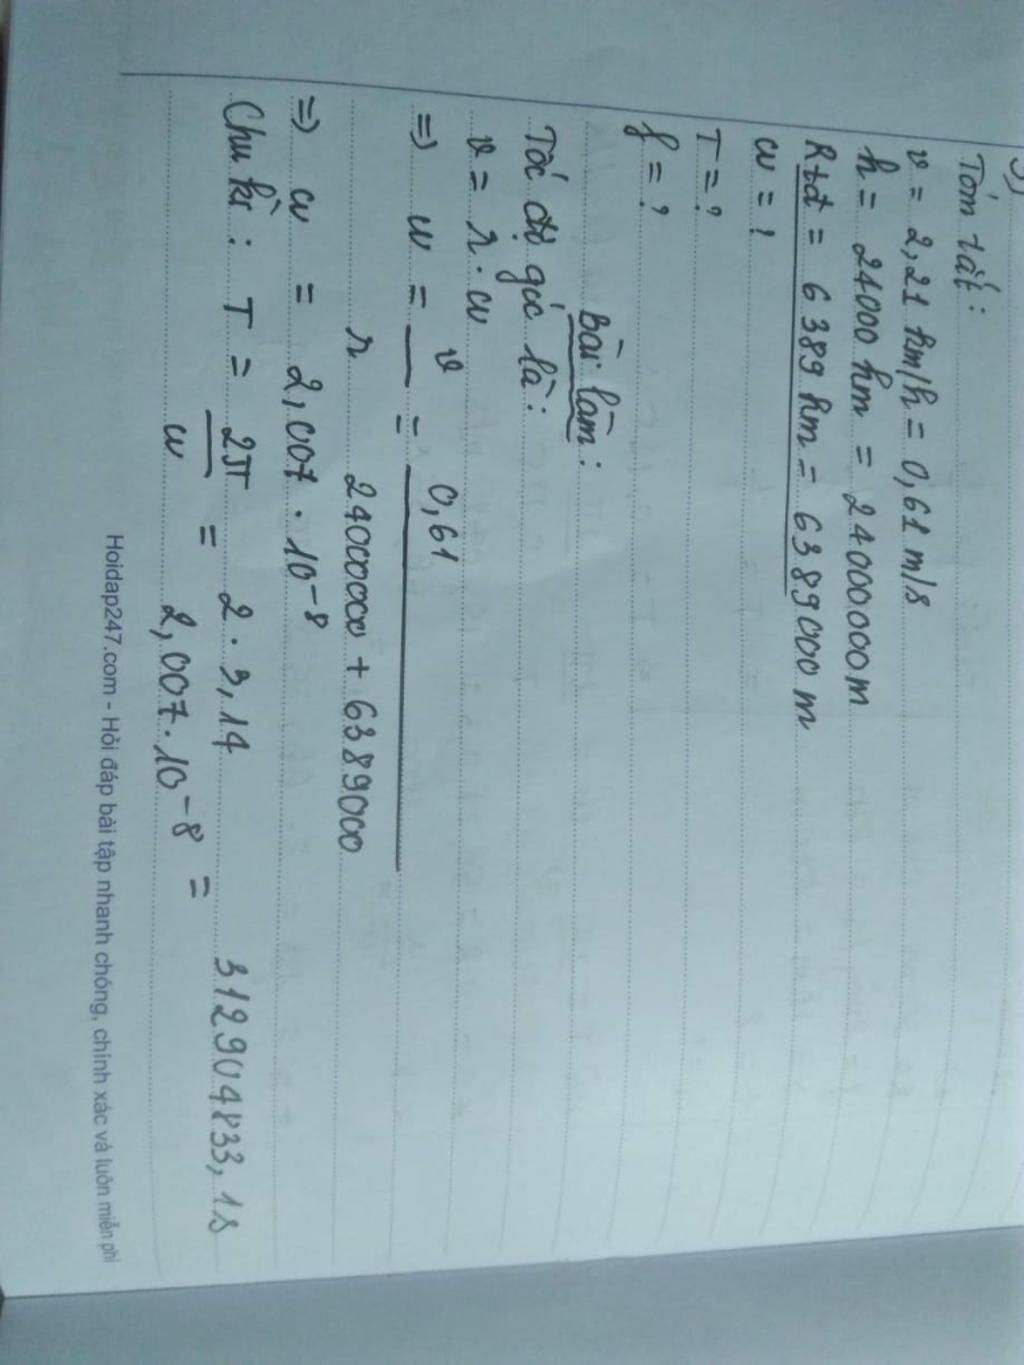 Tóm tắt:
v = 2,21 km/h = 0,61 m/s
h = 24000 km = 24000000m
Rtđ = 6389 km = 6389000 m
w = ?
T = ?
f = ?
Bài làm:
Tốc độ góc là:
v = r . w
=> w = v/r = 0,61/(24000000 + 6389000)
=> w = 2,007 . 10⁻⁸
Chu kì : T = 2π/w = (2 . 3,14)/(2,007 . 10⁻⁸) = 312904833,1s
Hoidap247.com - Hỏi đáp bài tập nhanh chóng, chính xác và luôn miễn phí